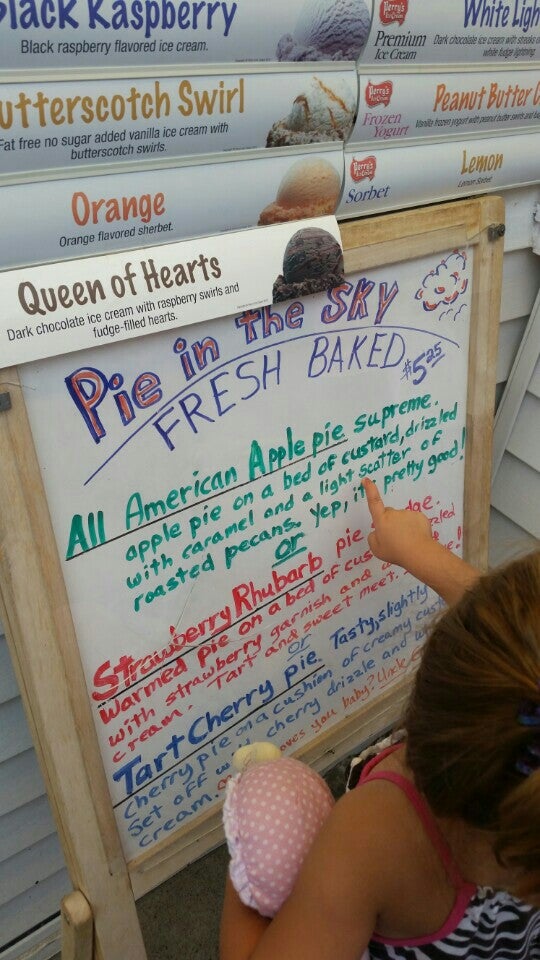 Black Raspberry
Black raspberry flavored ice cream.
Perry's
Premium
Ice Cream
White Ligh
Dark chocolate ice cream with streaks o
white fudge lightning.
utterscotch Swirl
Fat free no sugar added vanilla ice cream with
butterscotch swirls.
Perry's
Frozen
Yogurt
Peanut Butter C
Vanilla frozen yogurt with peanut butter swirls and
Orange
Orange flavored sherbet.
Perry's
Sorbet
Lemon
Lemon Sorbet
Queen of Hearts
Dark chocolate ice cream with raspberry swirls and
fudge-filled hearts.
Pie in the Sky
FRESH BAKED
$5.25
All American Apple pie supreme.
apple pie on a bed of custard, drizzled
with caramel and a light scatter of
roasted pecans. Yep, it's pretty good!
or
Strawberry Rhubarb pie
Warmed pie on a bed of
with strawberry garnish and
cream. Tart and sweet meet.
or
Tart Cherry pie. Tasty, slightly
Cherry pie on a cushion of creamy
Set off cherry drizzle and
cream. loves you baby? Uncle